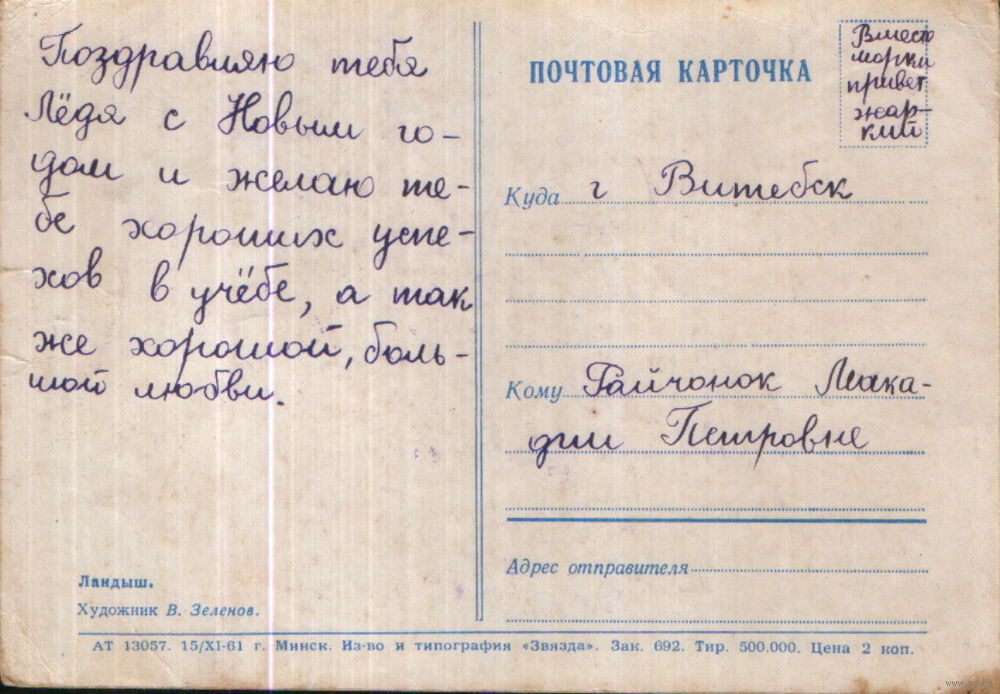 Поздравляю тебя
Лёдя с Новым го-
дом и желаю те-
бе хороших успе-
хов в учёбе, а так
же хорошой, боль-
шой любви.
Ландыш.
Художник В. Зеленов.
ПОЧТОВАЯ КАРТОЧКА
Вместо
марки
привет
жар-
кий
Куда г Витебск
Кому Гайчонок Лика-
дии Петровне
Адрес отправителя
АТ 13057. 15/XI-61 г. Минск. Из-во и типография «Звязда». Зак. 692. Тир. 500.000. Цена 2 коп.